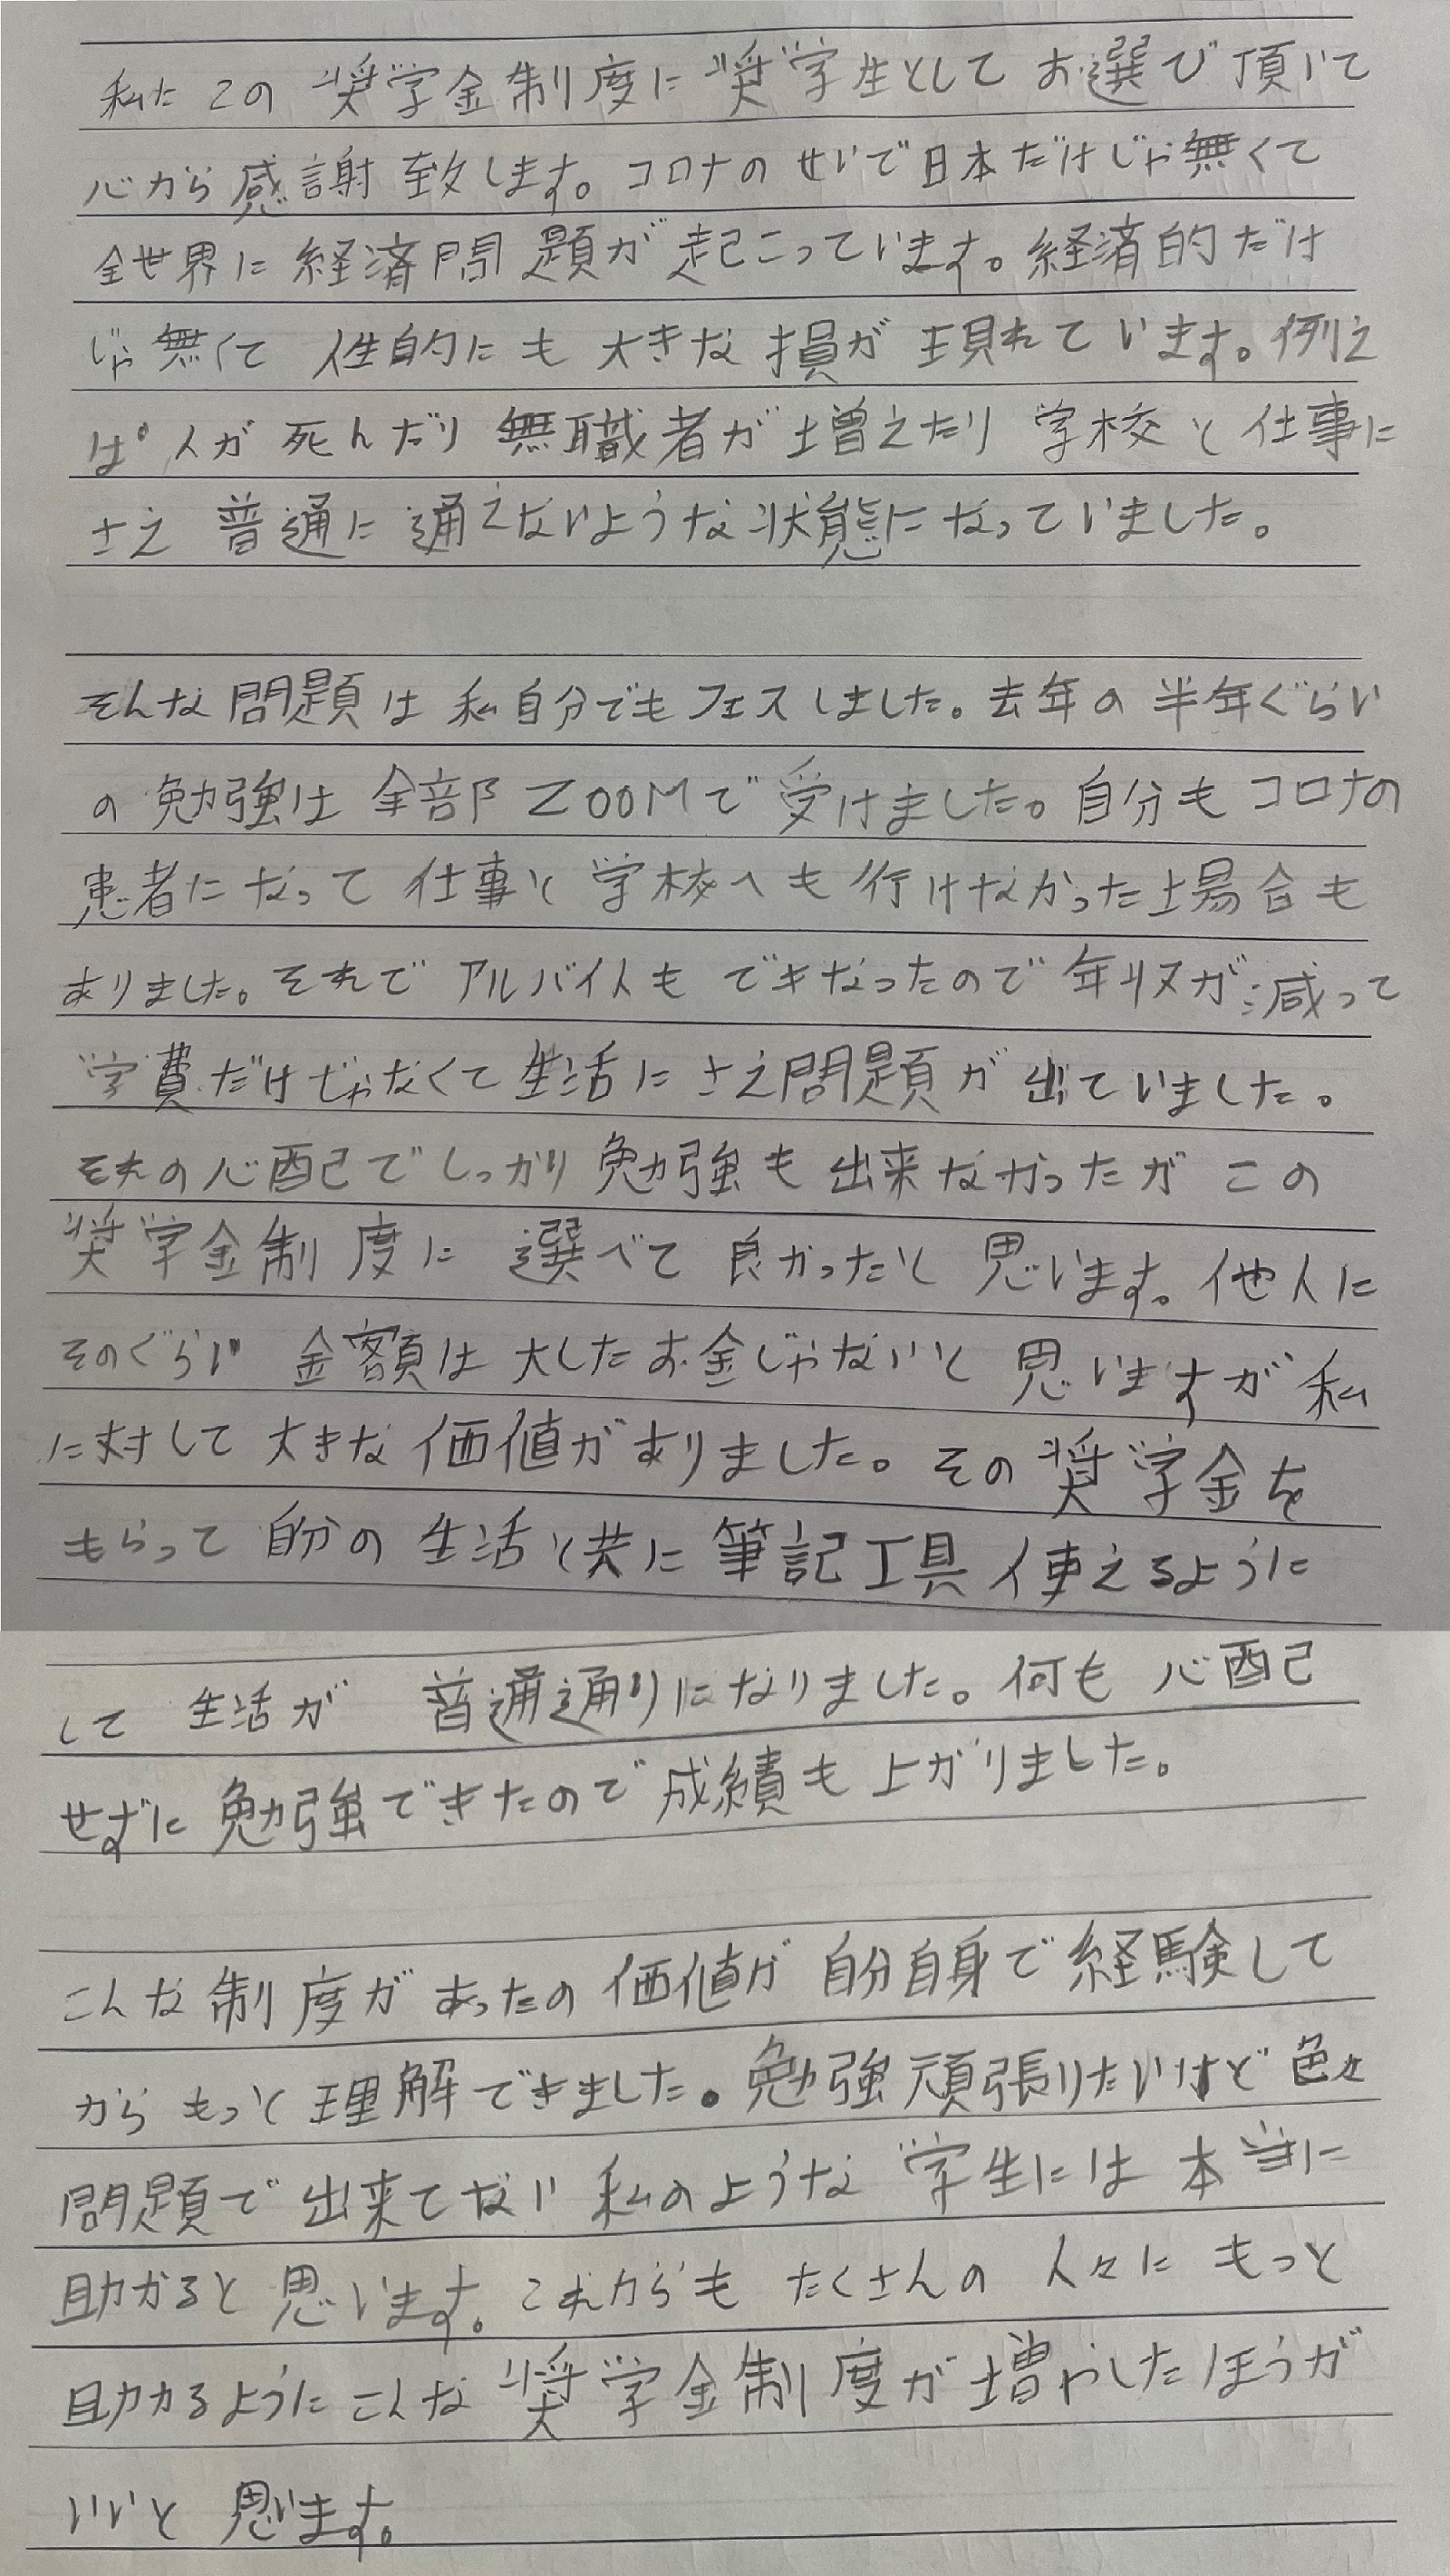 私たこの 奨学金制度に奨学生としてお選び頂いて
心から感謝致します。コロナのせいで日本だけじゃ無くて
全世界に経済問題が起こっています。経済的だけ
じゃ無くて 人生的にも大きな損が現れています。例え
ぱ人が死んだり無職者が増えたり学校と仕事に
さえ普通に通えないような状態になっていました。
そんな問題は私自分でもフェスしました。去年の半年ぐらい
の勉強は全部ZOOMで受けました。自分もコロナの
患者になって仕事と学校へも行けなかった場合も
ありました。それでアルバイトもできなったので年収が減って
学費だけじゃなくて生活にさえ問題が出ていました。
それの心配でしっかり勉強も出来なかったがこの
奨学金制度に選べて良かったと思います。他人に
そのぐらい金額は大したお金じゃないと思いますが私
に対して大きな価値がありました。その奨学金を
もらって自分の生活と共に筆記工具使えるように
して生活が 普通通りになりました。何も心配
せずに勉強できたので成績も上がりました。
こんな制度があったの価値が自分自身で経験して
からもっと理解できました。勉強頑張りたいけど色々
問題で出来てない私のような学生には本当に
助かると思います。これからもたくさんの人々にもっと
助かるようにこんな奨学金制度が増やしたほうが
いいと思います。